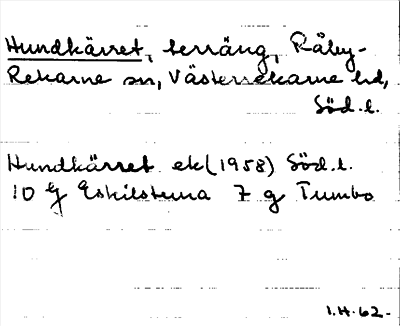 Hundkärret, terräng, Råby-
Rekarne sn, Västerrekarne hd,
Söd.l.
Hundkärret ek (1958) Söd.l.
10 g Eskilstuna 7 g Tumbo
1.H.62.